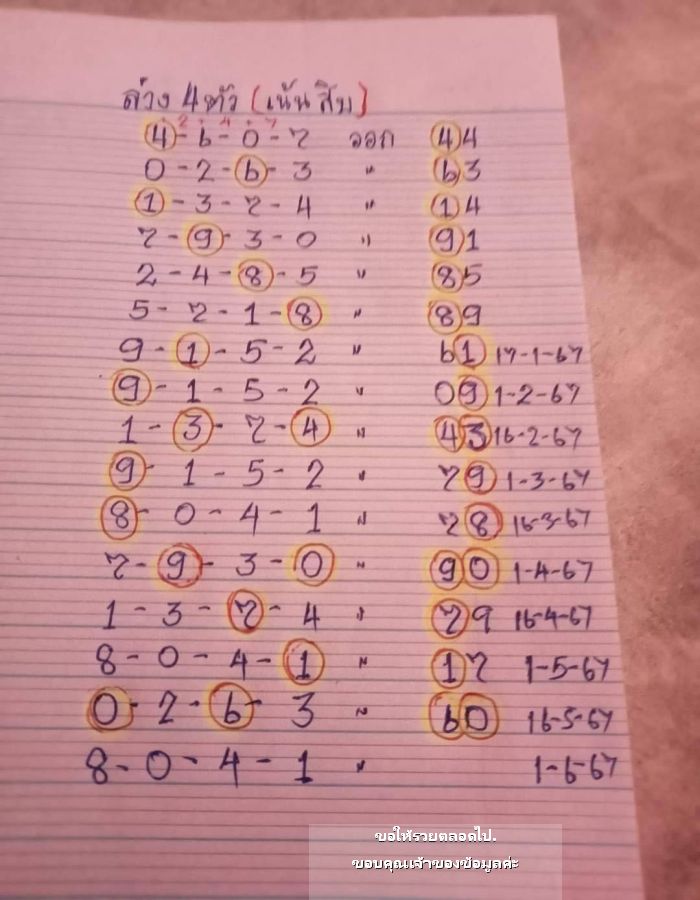 ล่าง 4 ตัว (เน้นสิบ)
4 - 6 - 0 - 7 ออก 44
0 - 2 - 6 - 3 " 63
1 - 3 - 7 - 4 " 14
7 - 9 - 3 - 0 " 91
2 - 4 - 8 - 5 " 85
5 - 7 - 1 - 8 " 89
9 - 1 - 5 - 2 " 61 17-1-67
9 - 1 - 5 - 2 " 09 1-2-67
1 - 3 - 7 - 4 " 43 16-2-67
9 - 1 - 5 - 2 " 79 1-3-67
8 - 0 - 4 - 1 " 78 16-3-67
7 - 9 - 3 - 0 " 90 1-4-67
1 - 3 - 7 - 4 " 79 16-4-67
8 - 0 - 4 - 1 " 17 1-5-67
0 - 2 - 6 - 3 " 60 16-5-67
8 - 0 - 4 - 1 " 1-6-67
ขอให้รวยตลอดไป.
ขอบคุณเจ้าของข้อมูลค่ะ